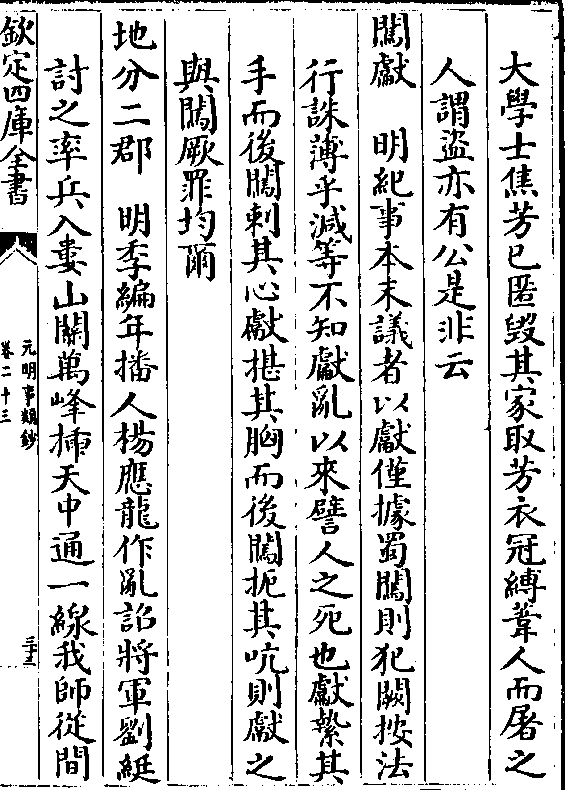 大學士焦芳已匿毀其家取芳衣冠縛葦人而屠之
人謂盜亦有公是非云
闖獻　明紀事本末議者以獻僅據蜀闖則犯闕按法
行誅薄乎減等不知獻亂以來譬人之死也獻縶其
手而後闖刺其心獻揕其胸而後闖扼其吭則獻之
與闖厥罪均爾
地分二郡　明季編年播人楊應龍作亂詔將軍劉綎
討之率兵入婁山關萬峰插天中通一線我師從間
欽定四庫全書
元明事類鈔
卷二十三
三十三